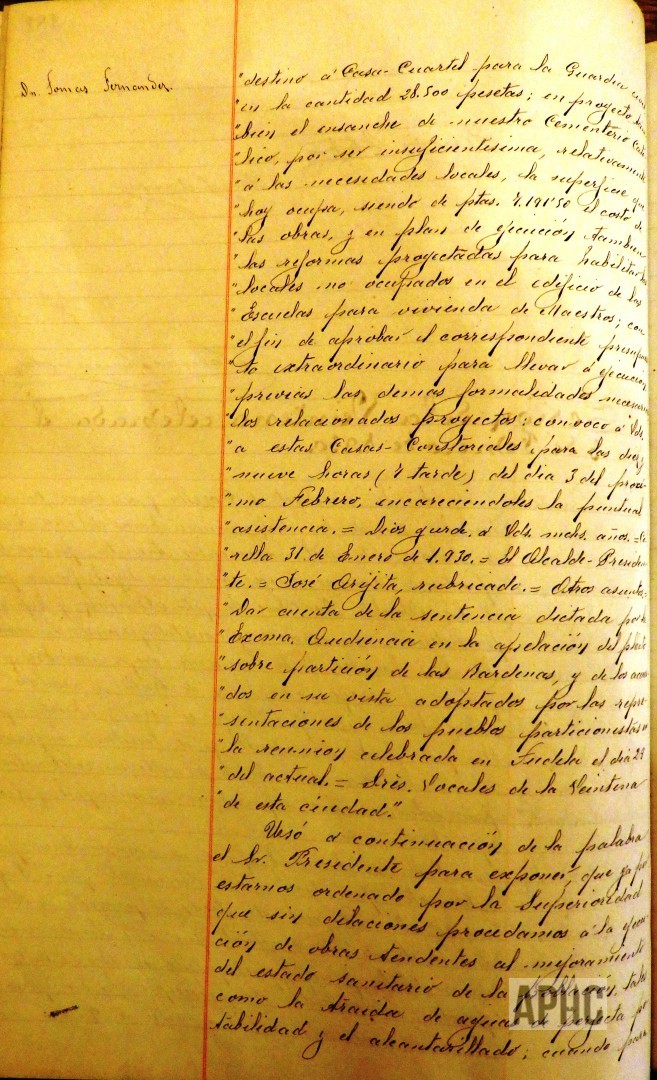 Dn. Tomas Fernandez.
"destino á Casa-Cuartel para la Guardia civil
"en la cantidad 28.500 pesetas; en proyecto tam
"bien el ensanche de nuestro Cementerio Cató
"lico, por ser insuficientisima, relativamente
"á las necesidades locales, la superficie que
"hoy ocupa, siendo de ptas. 7.191'50 el costo de
"las obras, y en plan de ejecución tambien
"las reformas proyectadas para habilitar los
"locales no ocupados en el edificio de las
"Escuelas para vivienda de Maestros; con
"el fin de aprobar el correspondiente presupues
"to extraordinario para llevar á ejecución
"previas las demas formalidades necesarias
"los relacionados proyectos: convoco á Vds.
"a estas Casas-Constoriales para las diez y
"nueve horas (7 tarde) del dia 3 del proxi
"mo Febrero, encareciendoles la puntual
"asistencia.= Dios gurde. á Vds. mchs. años.=Co
"rella 31 de Enero de 1.930.= El Alcalde-Presiden
"te.= José Arijita, rubricado.= Otros asuntos=
"Dar cuenta de la sentencia dictada por la
"Excma. Audiencia en la apelación del pleito
"sobre partición de las Bardenas, y de los acuer
"dos en su vista adoptados por las repre
"sentaciones de los pueblos particionistas en
"la reunion celebrada en Tudela el dia 29
"del actual.= Sres. Vocales de la Veintena
"de esta ciudad."
Usó a continuación de la palabra
el Sr. Presidente para exponer, que ya por
estarnos ordenado por la Superioridad
que sin dilaciones procedamos á la ejecu
ción de obras tendentes al mejoramiento
del estado sanitario de la población, tales
como la traida de aguas de perfecta po
tabilidad y el alcantarillado; cuando para
APHC